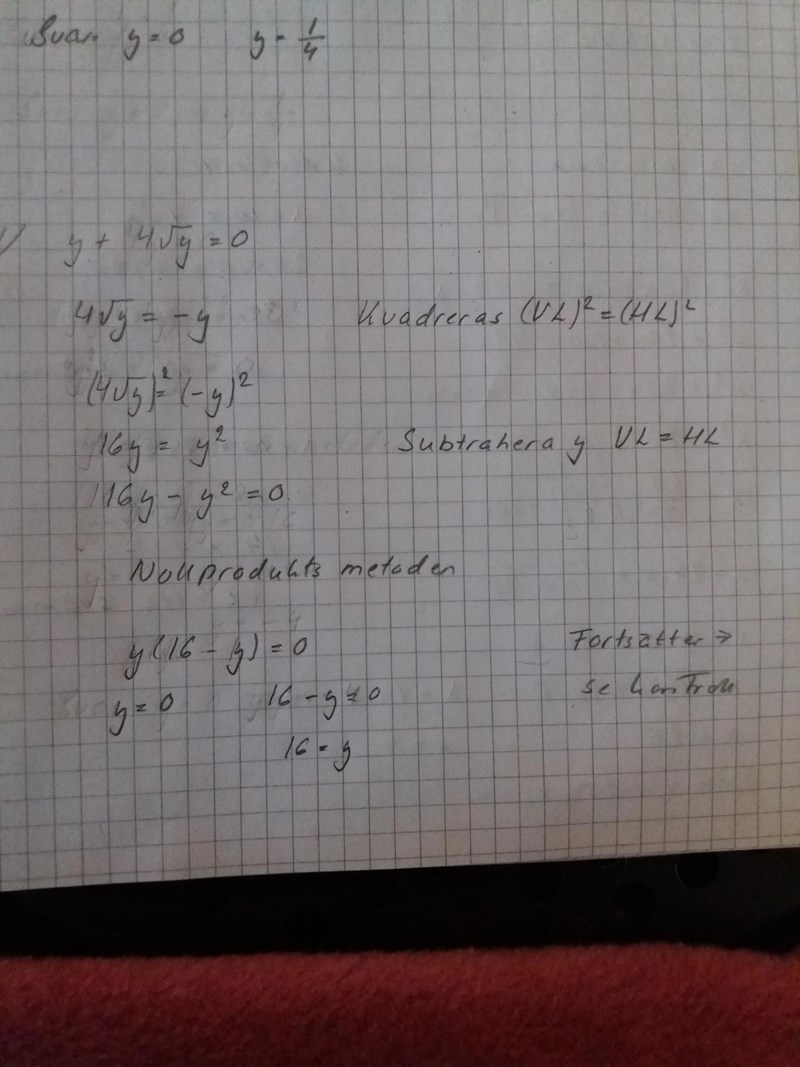 Svar. y = 0 y = 1/4
y + 4√y = 0
4√y = -y Kvadreras (VL)² = (HL)²
(4√y)² = (-y)²
16y = y² Subtrahera y VL = HL
16y - y² = 0
Nollprodukts metoden
y(16 - y) = 0 Fortsätter →
y = 0 16 - y = 0 se kontroll
16 = y